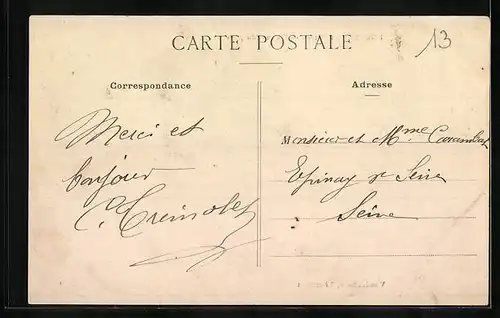 CARTE POSTALE
13
Correspondance
Adresse
Merci et
bonjour
Monsieur et Mme
Epinay s/ Seine
Seine